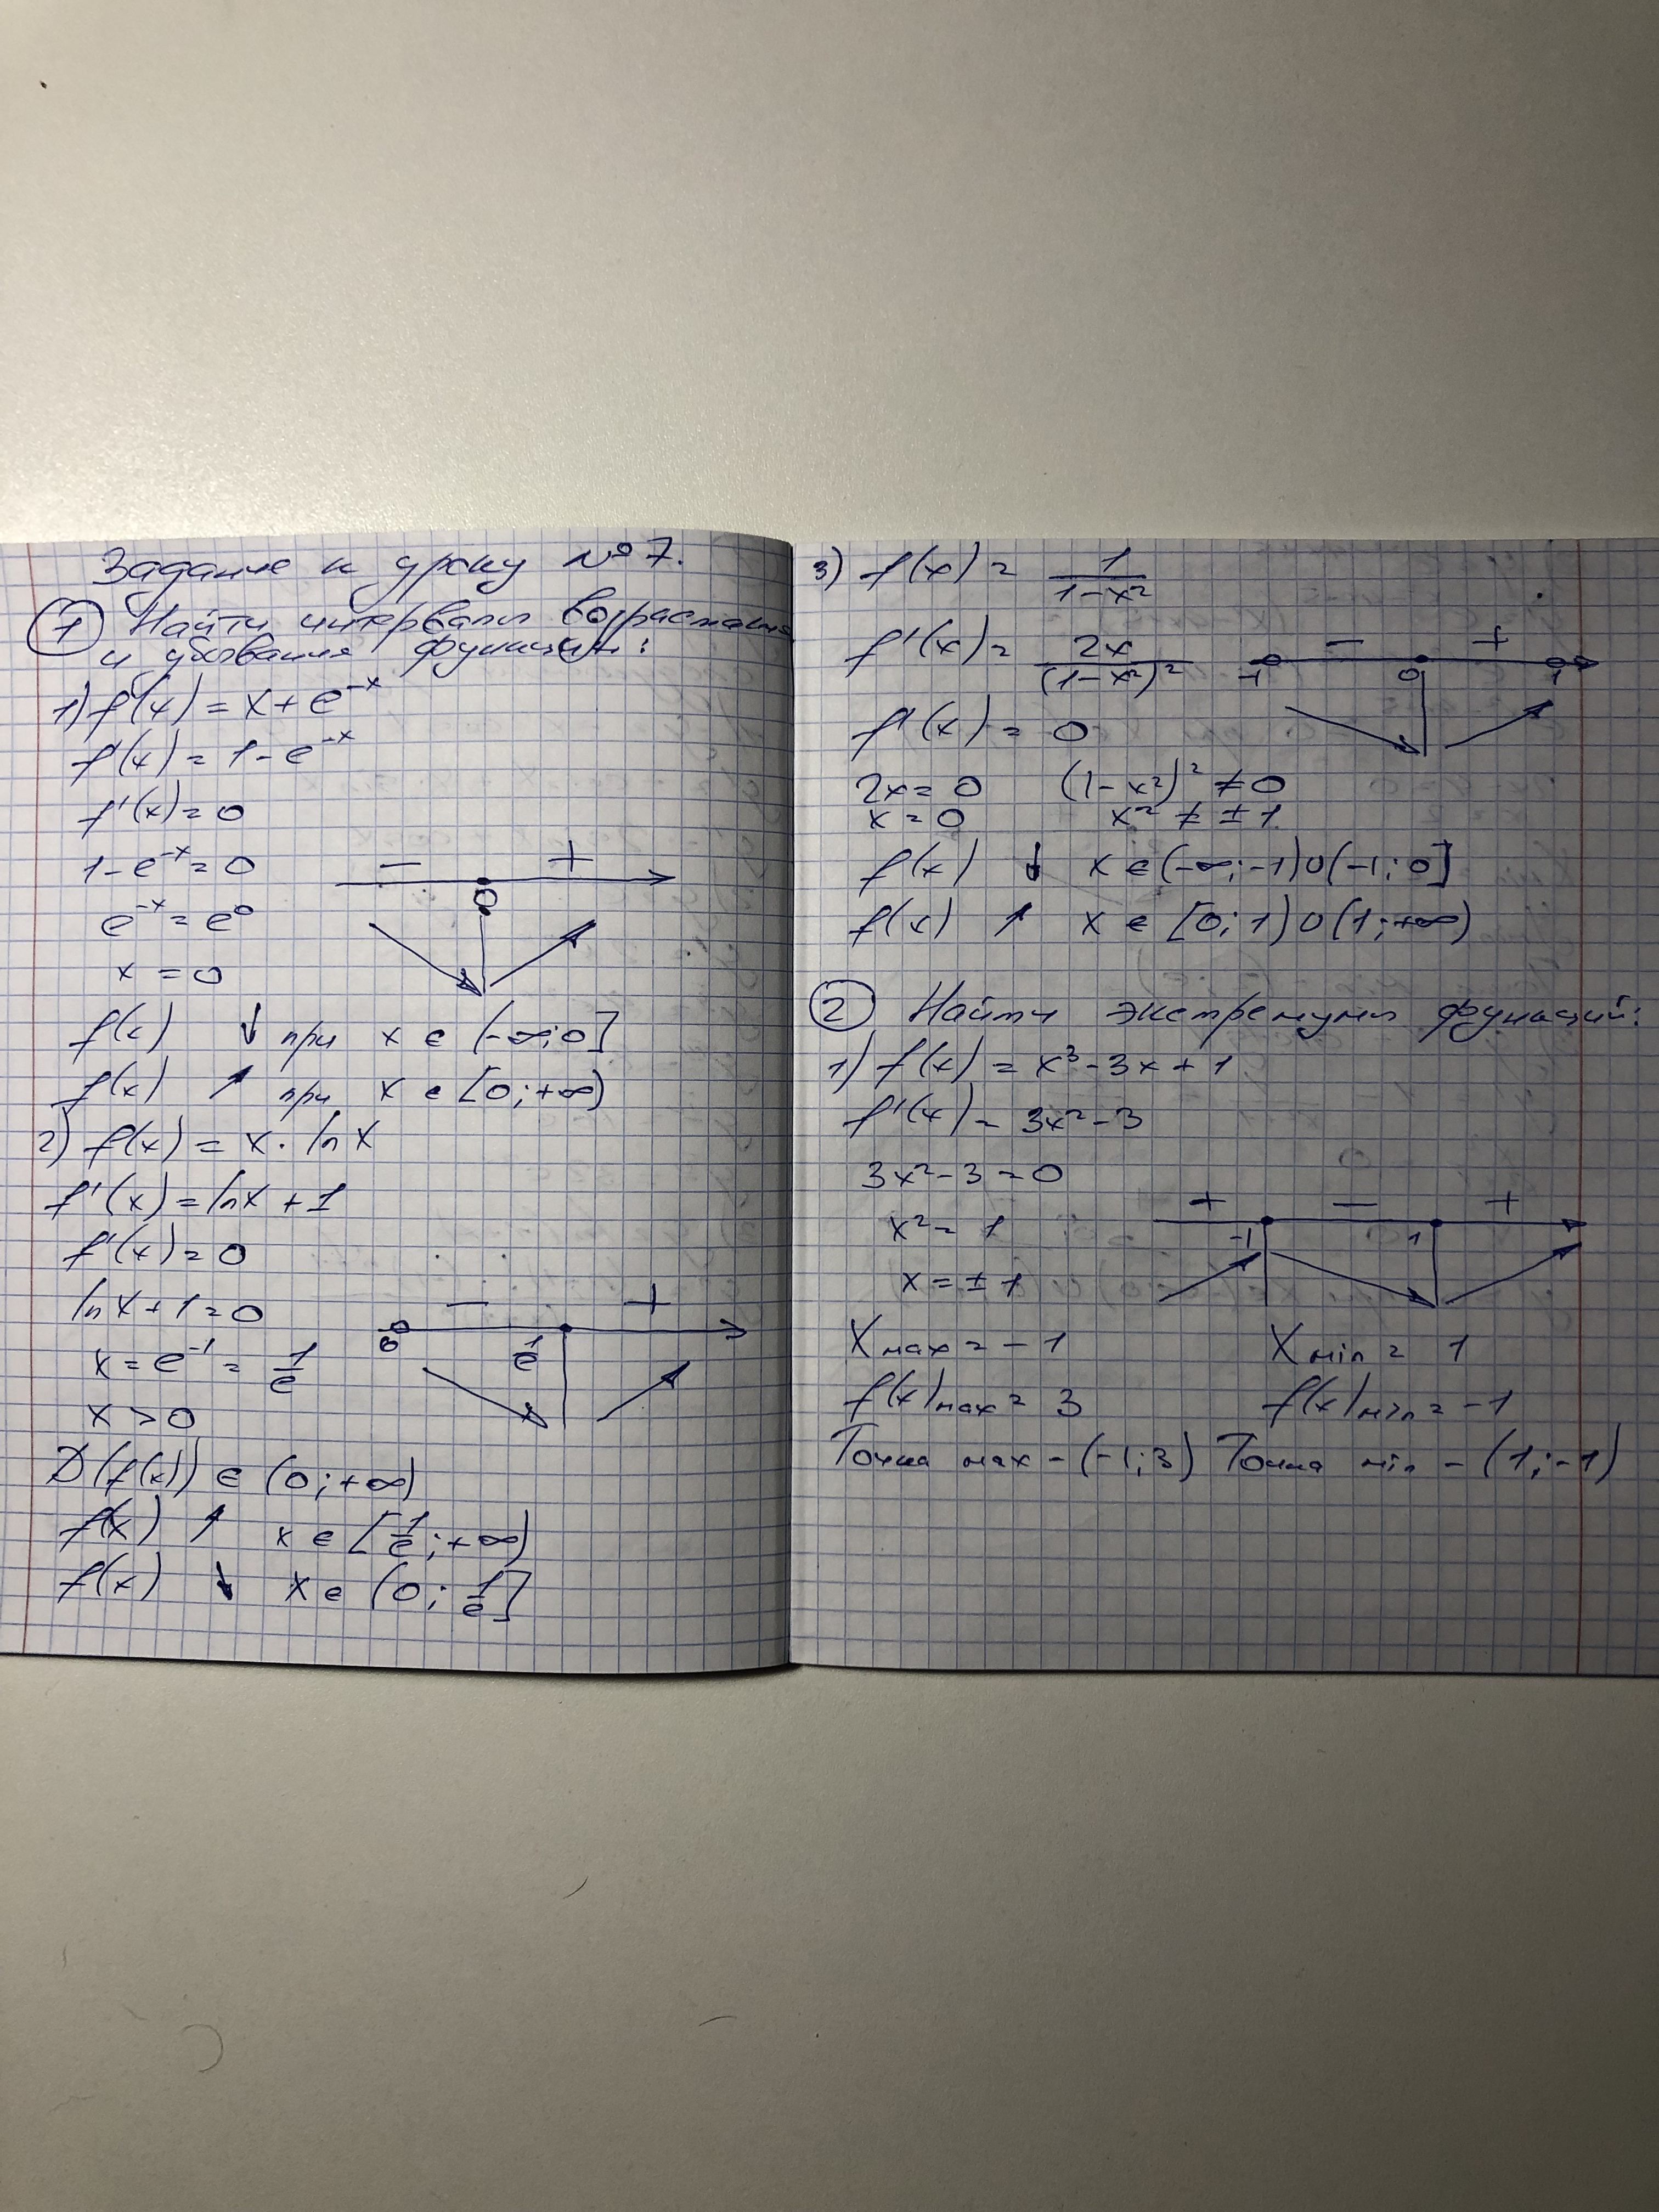 Задание к уроку №7.
① Найти интервалы возрастания
и убывания функций:
1) f(x) = x + e⁻ˣ
f'(x) = 1 - e⁻ˣ
f'(x) = 0
1 - e⁻ˣ = 0
− +
0
e⁻ˣ = e⁰
x = 0
f(x) ↓ при x ∈ (-∞; 0]
f(x) ↗ при x ∈ [0; +∞)
2) f(x) = x · ln x
f'(x) = ln x + 1
f'(x) = 0
ln x + 1 = 0
− +
0 1/e
x = e⁻¹ = 1/e
x > 0
D(f(x)) ∈ (0; +∞)
f(x) ↗ x ∈ [1/e; +∞)
f(x) ↓ x ∈ (0; 1/e]
3) f(x) = 1/(1-x²)
f'(x) = 2x/(1-x²)²
− +
-1 0 1
f'(x) = 0
2x = 0 (1-x²)² ≠ 0
x = 0 x² ≠ ± 1
f(x) ↓ x ∈ (-∞; -1) ∪ (-1; 0]
f(x) ↗ x ∈ [0; 1) ∪ (1; +∞)
② Найти экстремумы функций:
1) f(x) = x³ - 3x + 1
f'(x) = 3x² - 3
3x² - 3 = 0
+ − +
-1 1
x² = 1
x = ± 1
X max = -1 X min = 1
f(x) max = 3 f(x) min = -1
Точка max - (-1; 3) Точка min - (1; -1)